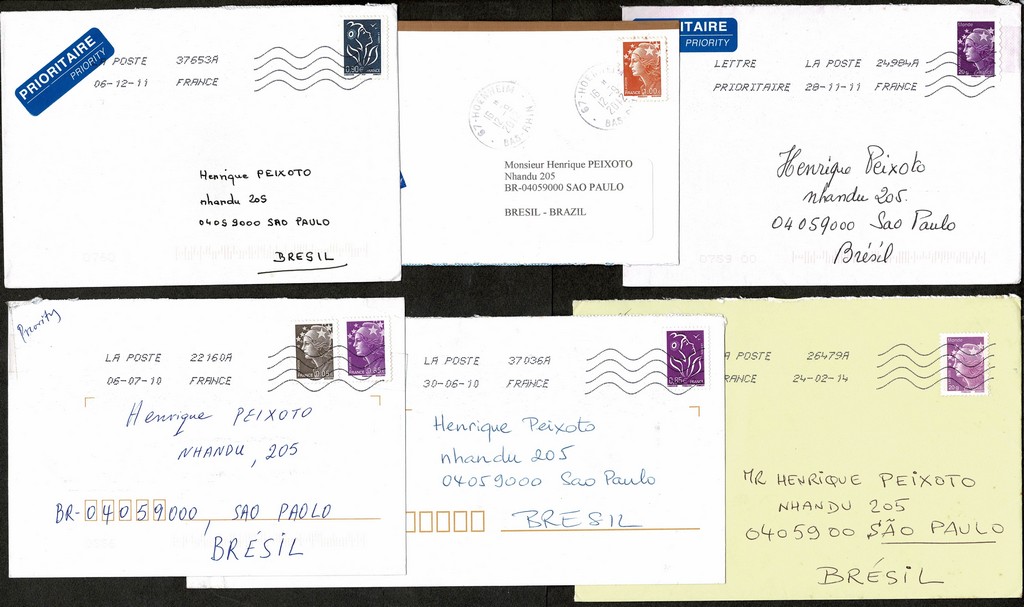 PRIORITAIRE
PRIORITY
POSTE 37653A
06-12-11 FRANCE
0,90€
Henrique PEIXOTO
nhandu 205
04059000 SAO PAULO
BRESIL
67-HOENHEIM
BAS-RHIN
2012
FRANCE 1,00€
Monsieur Henrique PEIXOTO
Nhandu 205
BR-04059000 SAO PAULO
BRESIL - BRAZIL
ITAIRE
PRIORITY
LETTRE LA POSTE 24984A
PRIORITAIRE 28-11-11 FRANCE
Monde
20g
Henrique Peixoto
nhandu 205.
04059000 Sao Paulo
Brésil
Priority
LA POSTE 22160A
06-07-10 FRANCE
FRANCE 0,05€
FRANCE 0,85€
Henrique PEIXOTO
NHANDU, 205
BR-04059000, SAO PAOLO
BRÉSIL
LA POSTE 37036A
30-06-10 FRANCE
0,85€
Henrique Peixoto
nhandu 205
04059000 Sao Paulo
BRESIL
A POSTE 26479A
RANCE 24-02-14
Monde
20g
MR HENRIQUE PEIXOTO
NHANDU 205
04059000 SÃO PAULO
BRÉSIL